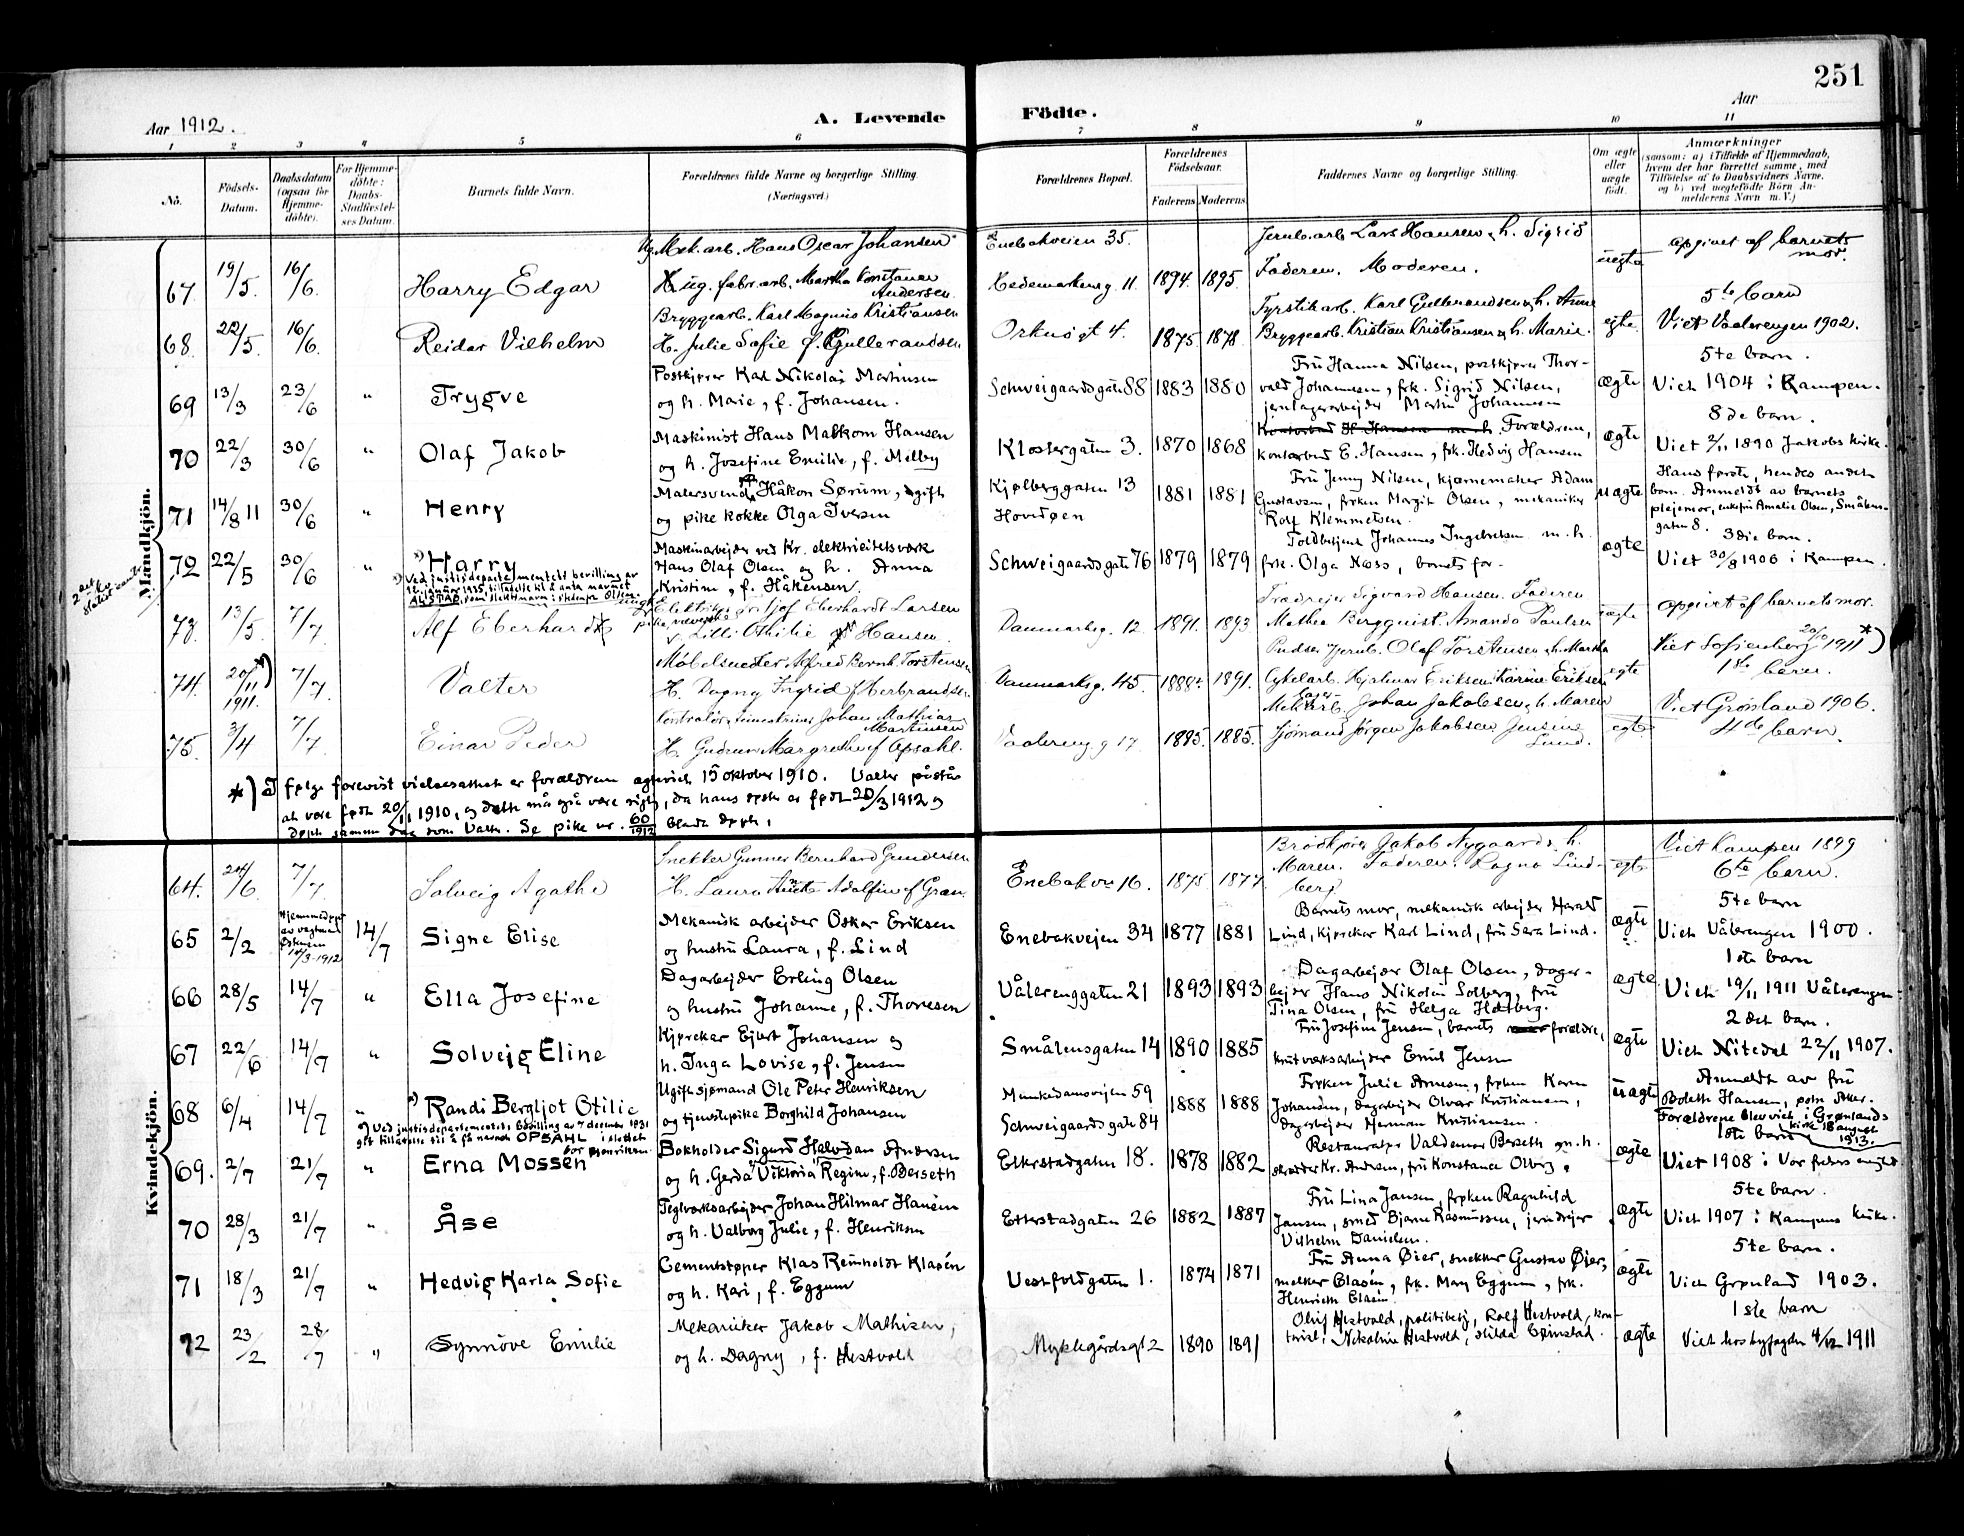 251
Aar 1912.
A. Levende Födte.
Aar
1 2 3 4 5 6 7 8 9 10 11
No.
Födsels-Datum.
Daabsdatum (ogsaa for Hjemmedöbte).
For Hjemmedöbte: Daabs-Stadfæstelses Datum.
Barnets fulde Navn.
Forældrenes fulde Navne og borgerlige Stilling. (Næringsvei)
Forældrenes Bopæl.
Forældrenes Födselsaar.
Faderens Moderens
Faddernes Navne og borgerlige Stilling.
Om ægte eller uægte födt.
Anmærkninger (saasom: a) i Tilfælde af Hjemmedaab, hvem der har forrettet samme, med Tilföielse af to Daabsvidners Navne, og b) ved uægtefödte Börn Anmelderens Navn m. V.)
Mandkjön.
67. 19/5. 16/6. Harry Edgar
Ug. Mek. arb. Hans Oscar Johansen
ug. fabr. arb. Martha Konstanse Andersen.
Enebakveien 35.
Hedemarkensg. 11. 1894. 1895.
Jernb. arb Lars Hansen & h. Sigrid
Faderen. Moderen.
uegte
opgivet af barnets mor.
68. 22/5. 16/6. Reidar Vilhelm
Bryggearb. Karl Magnus Kristiansen
H. Julie Sofie f. Gulbrandsen
Orknögt 4. 1875 1878.
Fyrstikarb. Karl Gulbrandsen & h. Anne
Bryggearb. Kristian Kristiansen & h. Marie.
egte.
5te barn
Viet Vaalerengen 1902.
69 13/3 23/6 " Trygve
Postkjører Karl Nikolai Martinsen
og h. Marie, f. Johansen.
Schweigaardsgaten 88 1883 1880
Fru Hanna Nilsen, postkjører Thorvald Johannesen, frk. Sigrid Nilsen,
jernlagerarbejder Martin Johannesen
ægte
5te barn.
Viet 1904 i Kampen.
70 22/3 30/6 " Olaf Jakob
Maskinist Hans Malkom Hansen
og h. Josefine Emilie, f. Melby
Klostergaten 3. 1870 1868
Forældrene,
kontorbud E. Hansen, frk. Hedvig Hansen
ægte
8de barn.
Viet 2/11 1890 Jakobs kirke.
71 14/8 11 30/6 " Henry
Malersvend Håkon Sørum, ugift
og pike kokke Olga Iversen
Kjølberggaten 13
Hovedøen
1881 1881
Fru Jenny Nilsen, kjørnemaker Adam
Gustavsen, frøken Margit Olsen, mekaniker
Rolf Klemmetsen.
uægte
Hans første, hendes andet
barn. Anmeldt av barnets
plejemor, enkefru Amalie Olsen, Smålensgaten 8.
72 22/5 30/6 " *) Harry
*) Ved justisdepartementets bevilling av
12. januar 1935, tilladelse til å anta navnet
ALSTAD, som slektsnavn istedenfor Olsen.
Maskinarbejder ved Kr. elektricitetsværk
Hans Olaf Olsen og h. Anna
Kristine, f. Håkensen
Schweigaardsgate 76 1879 1879
Toldbetjent Johannes Ingebretsen m. h.
frk. Olga Næss, barnets for-
ægte
3die barn.
Viet 30/8 1906 i Kampen.
73. 13/5. 7/7 Alf Eberhardt
Fritjof Eberhardt Larsen
Lilli Othilie Hansen.
Danmarksg. 12 1891. 1893
Trædrejer Sigvard Hansen. Faderen
Mathea Bergquist. Amanda Paulsen
uegte
opgivet af barnets mor.
74. 20/11 1911. *) 7/7. Valter
Möbelsnedker Alfred Bernh. Torstensen
H. Dagny Ingrid f. Herbrandsen
Danmarksg. 45. 1888. 1891.
Pudser Jernb. Olaf Torstensen & h. Martha
Cykelarb. Hjalmar Eriksen Karine Eriksen
egte
Viet Sofienberg 20/10 1911 *)
1ste barn.
75. 3/4 7/7. Einar Peder
Johan Mathias Martinsen
H. Gudrun Margrethe f. Opsahl.
Vaalereng g 17. 1885. 1885.
Johan Jakobsen & h. Maren
Sjömand Jørgen Jakobsen Jensine Lund.
egte
Viet Grønland 1906.
4de barn.
*) I følge forevist vielsesattest er forældrene egteviet 15 oktober 1910. Valter påstås
at være født 20/11 1910, og dette må også være rigtig, da hans søster er født 20/3 1912 og
døpt samme dag som Valter. Se pike nr. 60/1912 blandt døpte.
Kvindekjön.
64. 24/6. 7/7 Solveig Agathe
Snekker Gunner Bernhard Gundersen
H. Laura Adolfine f. Gran
Enebakve 16. 1875 1877.
Brödkjører Jakob Nygaard & h.
Maren. Faderen. Ragna Lindberg
egte
Viet Kampen 1899
6te barn.
65 2/2 Hjemmedøpt av vagtmester Østmoen 10/3-1912 14/7 Signe Elise
Mekanisk arbejder Oskar Eriksen
og hustru Laura, f. Lind
Enebakvejen 34 1877 1881
Barnets mor, mekanisk arbejder Harald
Lind, kjøreker Karl Lind, fru Sara Lind.
ægte
5te barn
Viet Vålerengen 1900.
66 28/5 14/7 " Ella Josefine
Dagarbejder Erling Olsen
og hustru Johanne, f. Thoresen
Vålerenggaten 21 1893 1893
Dagarbejder Olaf Olsen, dagarbejder Hans Nikolai Solberg, fru
Tina Olsen, fru Helga Hatberg.
ægte
1ste barn
Viet 19/11 1911 Vålerengen
67 22/6 14/7 " Solvejg Eline
Kjøreker Ejlert Johansen og
h. Inga Lovise, f. Jensen
Smålensgaten 14 1890 1885
Fru Josefine Jensen, barnets forældre,
krutværksarbejder Emil Jensen
ægte
2det barn.
Viet Nitedal 22/11 1907.
68 6/4 14/7 " *) Randi Bergljot Otilie
*) Ved justisdepartementets bevilling av 7 december 1931
git tilladelse til å få navnet OPSAHL i stedet
for Henriksen.
Ugift sjømand Ole Peter Henriksen
og tjenestepike Borghild Johansen
Munkedamsvejen 59
Schweigaardsgate 84
1888 1888
Frøken Julie Arnesen, frøken Karen
Johansen, dagarbejder Olvar Kristiansen,
dagarbejder Herman Kristiansen.
uægte
Anmeldt av fru
Boleth Hansen, Aker.
Forældrene blev viet i Grønlands
kirke 18 august 1913.
69. 2/7 21/7 " Erna Mossen
Bokholder Sigurd Halvdan Andersen
og h. Gerda Viktoria Regine, f. Berseth
Etterstadgaten 18. 1878 1882
Restauratør Valdemar Berseth m. h.
skrædder Kr. Andersen, fru Konstance Olberg.
ægte
1ste barn
Viet 1908 i Vor frelsers
70 28/3 21/7 " Åse
Teglværksarbejder Johan Hilmar Hansen
og h. Valborg Julie, f. Henriksen
Etterstadgaten 26 1882 1887
Fru Lina Jansen, frøken Ragnhild
Jansen, smed Bjarne Rasmussen, jerndrejer
Vilhelm Danielsen.
ægte
5te barn.
Viet 1907 i Kampens kirke.
71 18/3 21/7 " Hedvig Karla Sofie
Cementstøper Klas Reinholdt Klasén
og h. Kari, f. Eggum
Vestfoldgaten 1. 1874 1871
Fru Anna Øier, snekker Gustav Øier,
Clasén, frk. Mary Eggum, frk.
Henriette Clasén.
ægte
5te barn.
Viet Grønland 1903.
72 23/2 28/7 " Synnöve Emilie
Mekaniker Jakob Mathisen,
og h. Dagny, f. Hestvold
Myklegårdsgt 2 1890 1891
Oluf Hestvold, politibetj, Rolf Hestvold,
Nikoline Hestvold, Hilda Grimstad.
ægte
1ste barn
Viet hos byfogden 4/12 1911